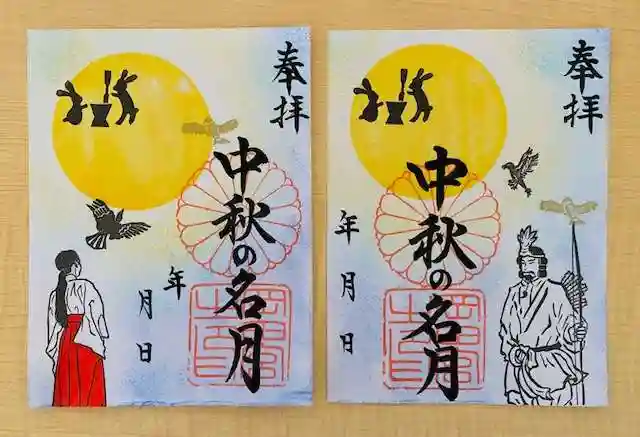 奉拝
中秋の名月
年
月
日
奉拝
中秋の名月
年
月
日